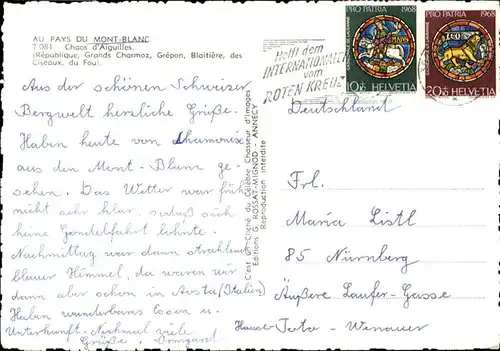 AU PAYS DU MONT-BLANC
T 081 Chaos d'Aiguilles,
(République, Grands Charmoz, Grépon, Blaitière, des
Ciseaux, du Fou).
Aus der schönen Schweizer
Bergwelt herzliche Grüße.
Haben heute von Chamonix
aus den Mont-Blanc ge-
sehen. Das Wetter war früh
nicht sehr klar, sodaß sich
keine Gondelfahrt lohnte.
Nachmittag war dann strahlend
blauer Himmel, da waren wir
dann aber schon in Aosta (Italien)
Haben wunderbares Essen u.
Unterkunft. Nochmal viele
Grüße. Irmgard
C'est un Cliché du Célèbre Chasseur d'Images
Editions G. ROSSAT-MIGNOD - ANNECY
Reproduction interdite
Helft dem
INTERNATIONALEN
vom
ROTEN KREUZ
PRO PATRIA 1968
10+5 HELVETIA
PRO PATRIA 1968
LEO
20+5 HELVETIA
Deutschland
Frl.
Maria Listl
85 Nürnberg
Äußere Laufer-Gasse
Hause Foto-